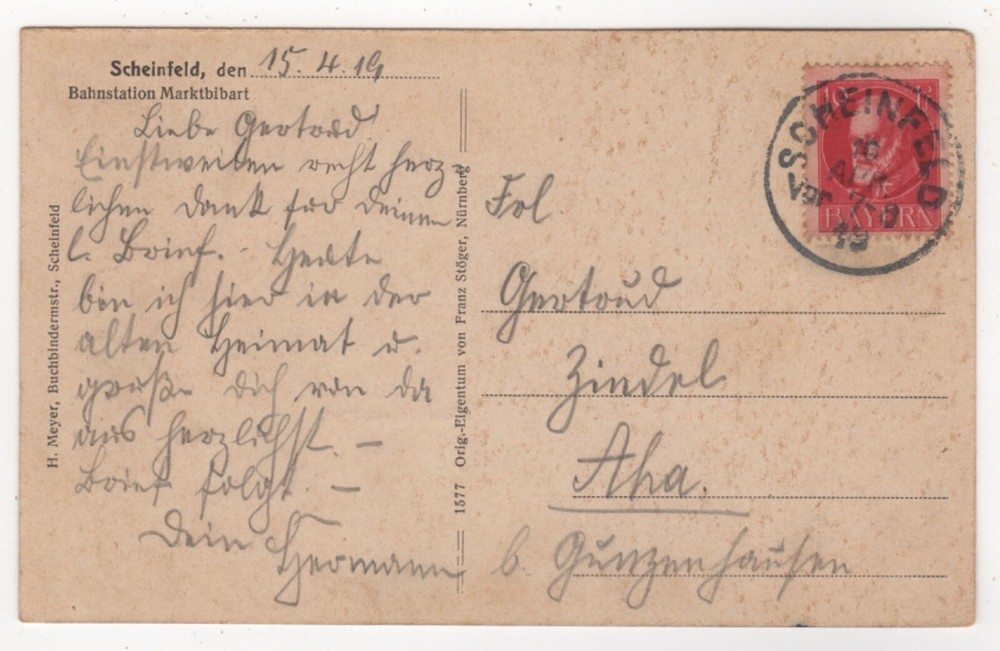 Scheinfeld, den 15. 4. 19
Bahnstation Marktbibart
Liebe Gertrud
Einstweilen recht herz
lichen Dank für deinen
l. Brief. - Heute
bin ich hier in der
alten Heimat u.
grüße Dich von da
aus herzlichst. -
Brief folgt. -
Dein Hermann
H. Meyer, Buchbindermstr., Scheinfeld
1577 Orig.-Eigentum von Franz Stöger, Nürnberg
10
BAYERN
SCHEINFELD
APR.
Vor. 7-9
19
Frl
Gertrud
Zindel
Aha.
b. Gunzenhausen